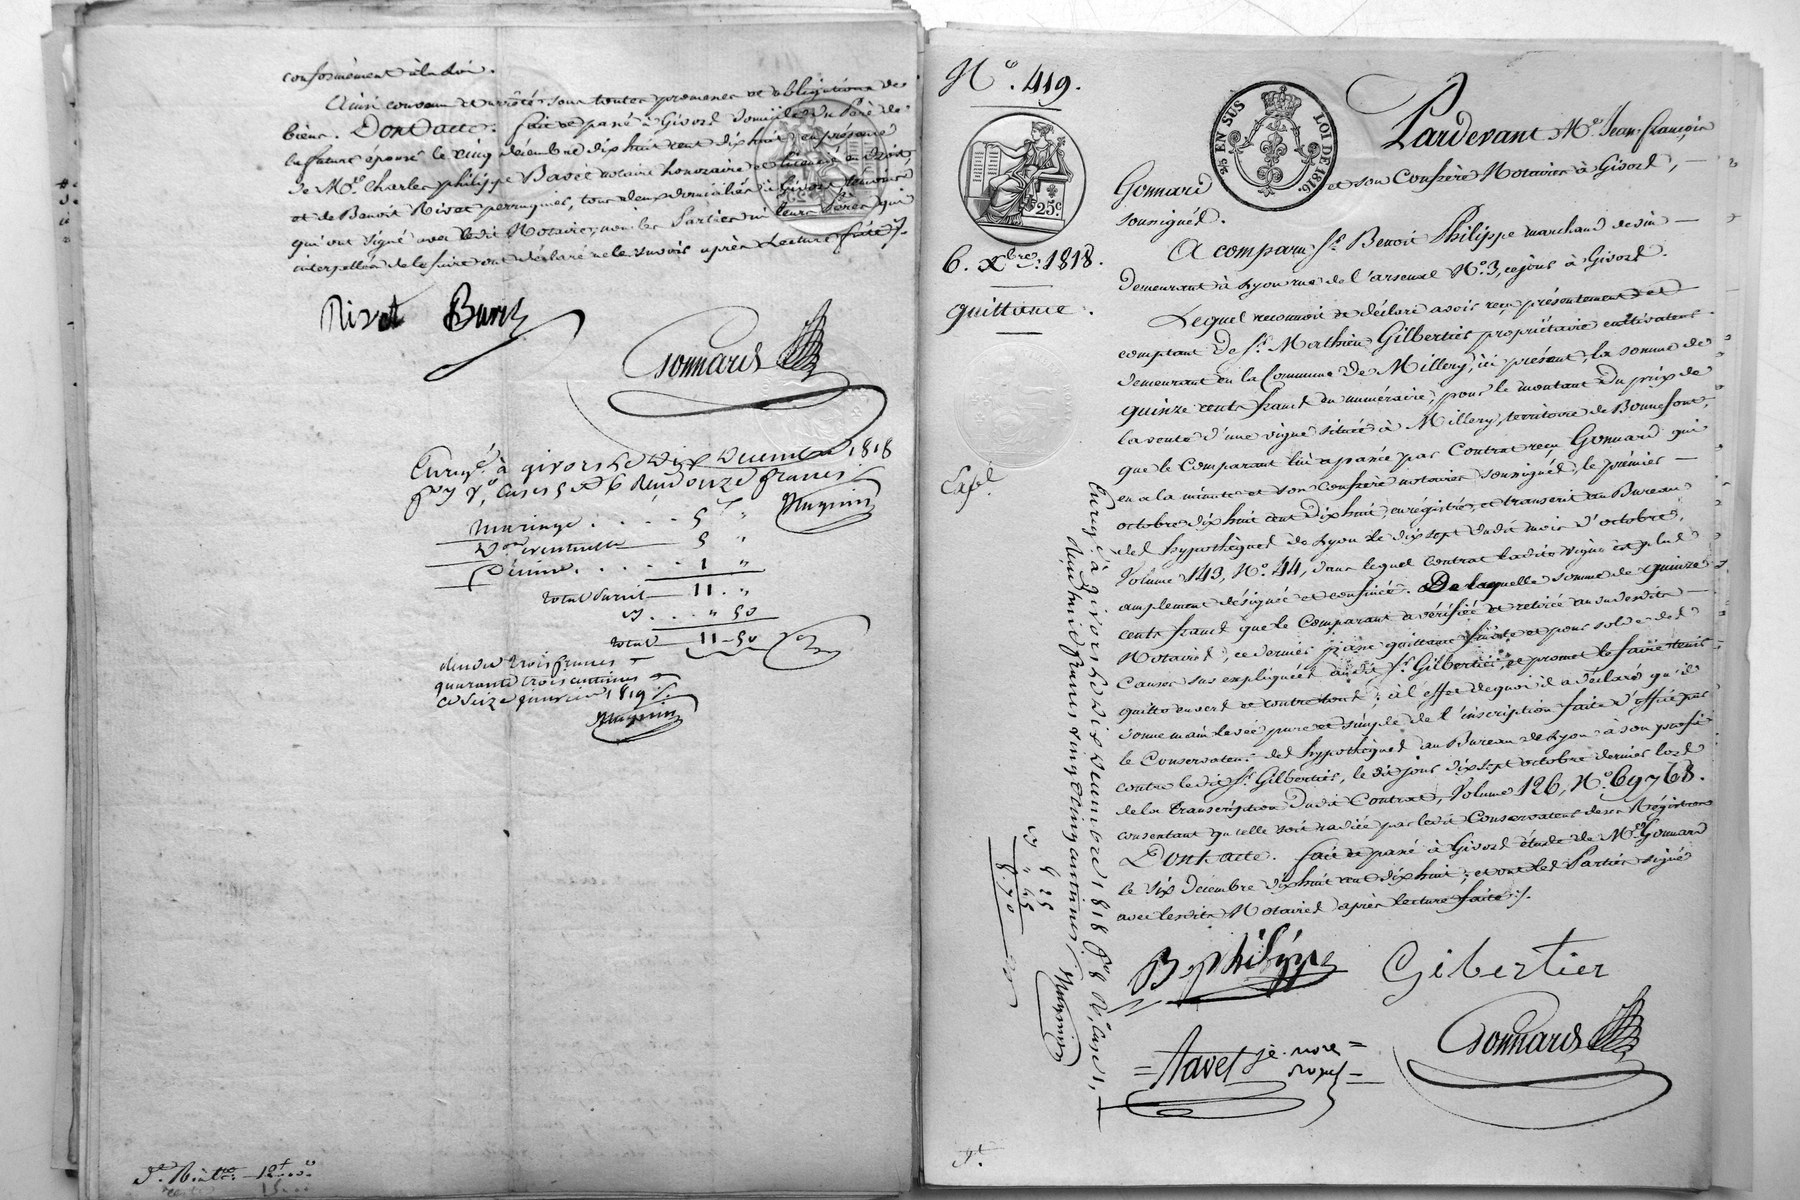 conformément à la Loi.
Ainsi convenu et arrêté sous toutes promesses et obligations de
biens. Dont acte. fait et passé à Givord domicile du Père de
la future épouse le cinq décembre dix huit cent dix huit en présence
de Me. Charles philippe Bavet notaire honoraire et licencié en droit,
et de Benoit Rivet perruquier, tous deux domiciliés à Givord témoins
qui ont signé avec ledit Notaire, non les Parties ni leurs Pères qui
interpellés de le faire ont déclaré ne le savoir après Lecture faite ./.
Rivet
Gonnard
Enregé. à givors le dix decembre 1818
cases 5 et 6 Reçu onze francs
Mariage . . . . 5 "
Don eventuelle 5 "
Décime . . . . . 1 "
total 11 . "
. . . " 50
total 11-50
trois francs
quarante trois centimes
ce seize janvier 1819
No. 419.
25 EN SUS
LOI DE 1816.
25c
6. Xbre. 1818.
quittance.
Expé.
Pardevant Me. Jean-françois
Gonnard et son Confrère Notaires à Givord,
soussignés.
A comparu Sr. Benoit Philippe marchand de vin
demeurant à Lyon rue de l'arsenal No. 3, ce jour à Givord.
Lequel reconnoit et déclare avoir reçu présentement et
comptant de Sr. Mathieu Gilbertier propriétaire cultivateur
demeurant en la Commune de Millery, ici présent, la somme de
quinze cents francs en numéraire, pour le montant du prix de
la vente d'une vigne située à Millery, territoire de Bonnefont,
que le Comparant lui a passée par Contrat reçu Gonnard qui
en a la minute et son confrère notaires soussignés, le premier
octobre dix huit cent dix huit, enregistré, et transcrit au Bureau
des hypothèques de Lyon le dix sept dudit mois d'octobre,
Volume 143, No. 44, dans lequel Contrat ladite vigne est plus
amplement désignée et confinée. De laquelle somme de quinze
cents francs que le Comparant a vérifiée et retirée au vu desdits
Notaires, ce dernier passe quittance finale et pour solde des
Causes sus expliquées audit Sr. Gilbertier, et promet le faire tenir
quitte envers et contre tous; à l'effet de quoi il a déclaré qu'il
donne main levée pure et simple de l'inscription faite d'office par
le Conservateur des hypothèques au Bureau de Lyon à son profit
contre ledit Sr. Gilbertier, le dit jour dix sept octobre dernier lors
de la transcription dudit Contrat, Volume 126, No. 69768.
consentant qu'elle soit radiée par ledit Conservateur de ses Régistres
Dont acte. fait et passé à Givord étude de Me. Gonnard
le six décembre dix huit cent dix huit; et ont les Parties signé
avec lesdits Notaires après lecture faite ./.
B. philippe
Gibertier
Gonnard
Enregé. à givors le dix decembre 1818 fo. 8 Ro. case 1,
reçu huit francs vingt cinq centimes
8 25
" 45
8.70